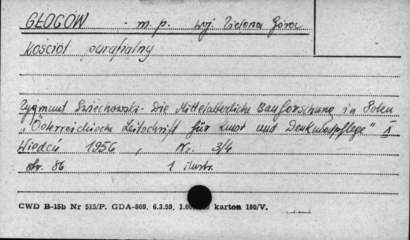 GŁOGÓW - m.p. woj. Zielona Góra
Kościół parafialny
Zygmunt Świechowski - Die Mittelalterliche Bauforschung in Polen
"Österreichische Zeitschrift für Kunst und Denkmalpflege" X
Wiedeń 1956, Nr. 3/4
str. 86 1 ilustr.
CWD H-15b Nr 515/P. GDA-809. 6.3.59, karton 180/V.